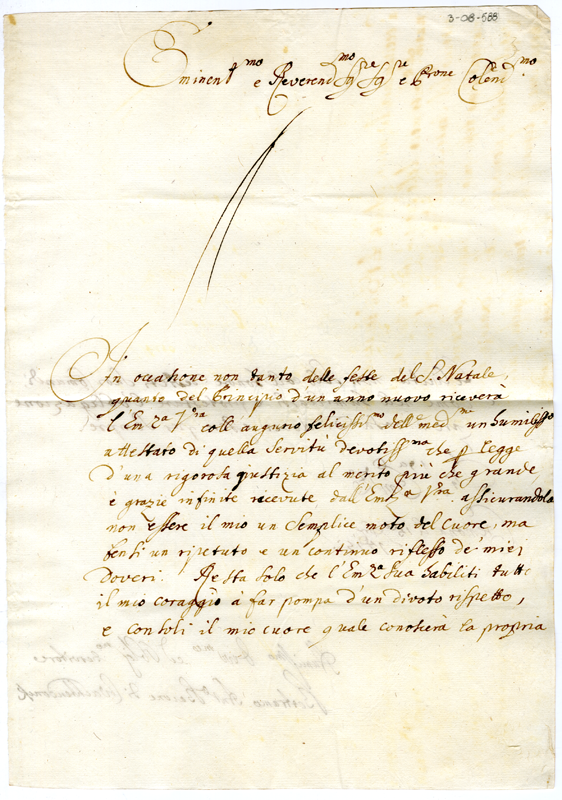 3-08-588
Eminent.mo e Reverend.mo Sig.re Sig.re e P.rone Colend.mo
In occasione non tanto delle feste del S. Natale,
quanto del Principio d'un anno nuovo riceverà
l'Em.za V.ra coll augurio feliciss.mo dell med.mo un humiliss.o
attestato di quella Servitù devotiss.ma che p legge
d'una rigorosa giustizia al merito più che grande
e grazie infinite ricevute dall'Em.za V.ra assicurandola
non essere il mio un Semplice moto del Cuore, ma
bensi un ripetuto e un continuo riflesso de' miei
Doveri. Resta solo che l'Em.za Sua habiliti tutto
il mio coraggio à far pompa d'un divoto rispetto,
e consoli il mio cuore quale conoscerà la propria